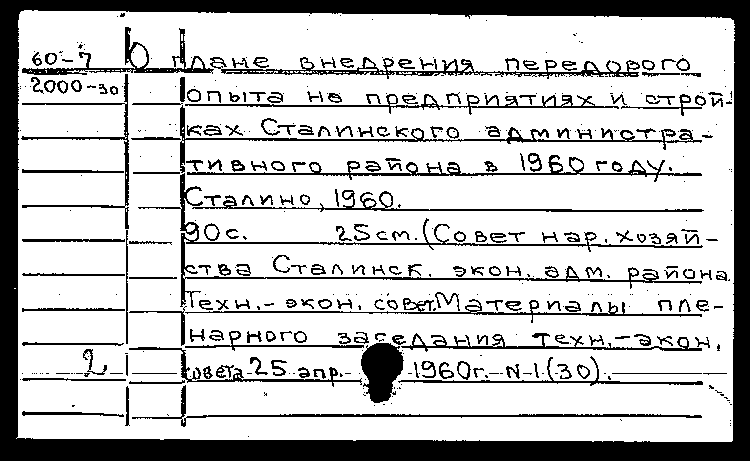 60-7 О плане внедрения передового
2000-30 опыта на предприятиях и строй-
ках Сталинского администра-
тивного района в 1960 году.
Сталино, 1960.
90с. 25см. (Совет нар. хозяй-
ства Сталинск. экон. адм. района
Техн.-экон. совет. Материалы пле-
нарного заседания техн.-экон.
2 совета 25 апр. 1960г. N-1(30).